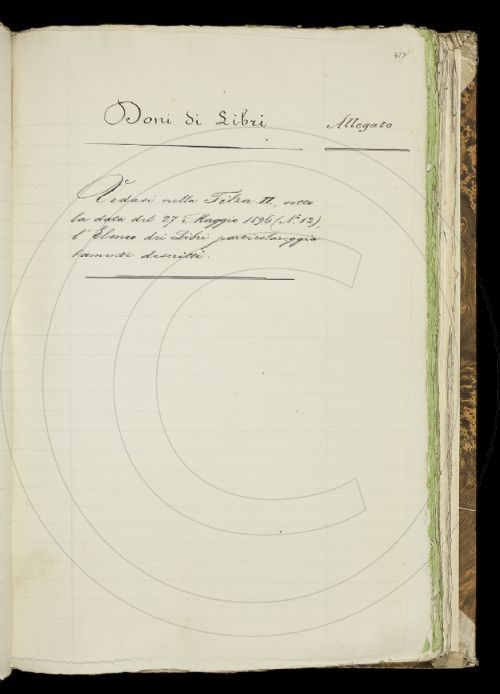 Doni di Libri Allegato
Vedasi nella Filza II, sotto
la data del 27 Maggio 1896 (N.º 12),
l'Elenco dei Libri particolareggia
tamente descritti.